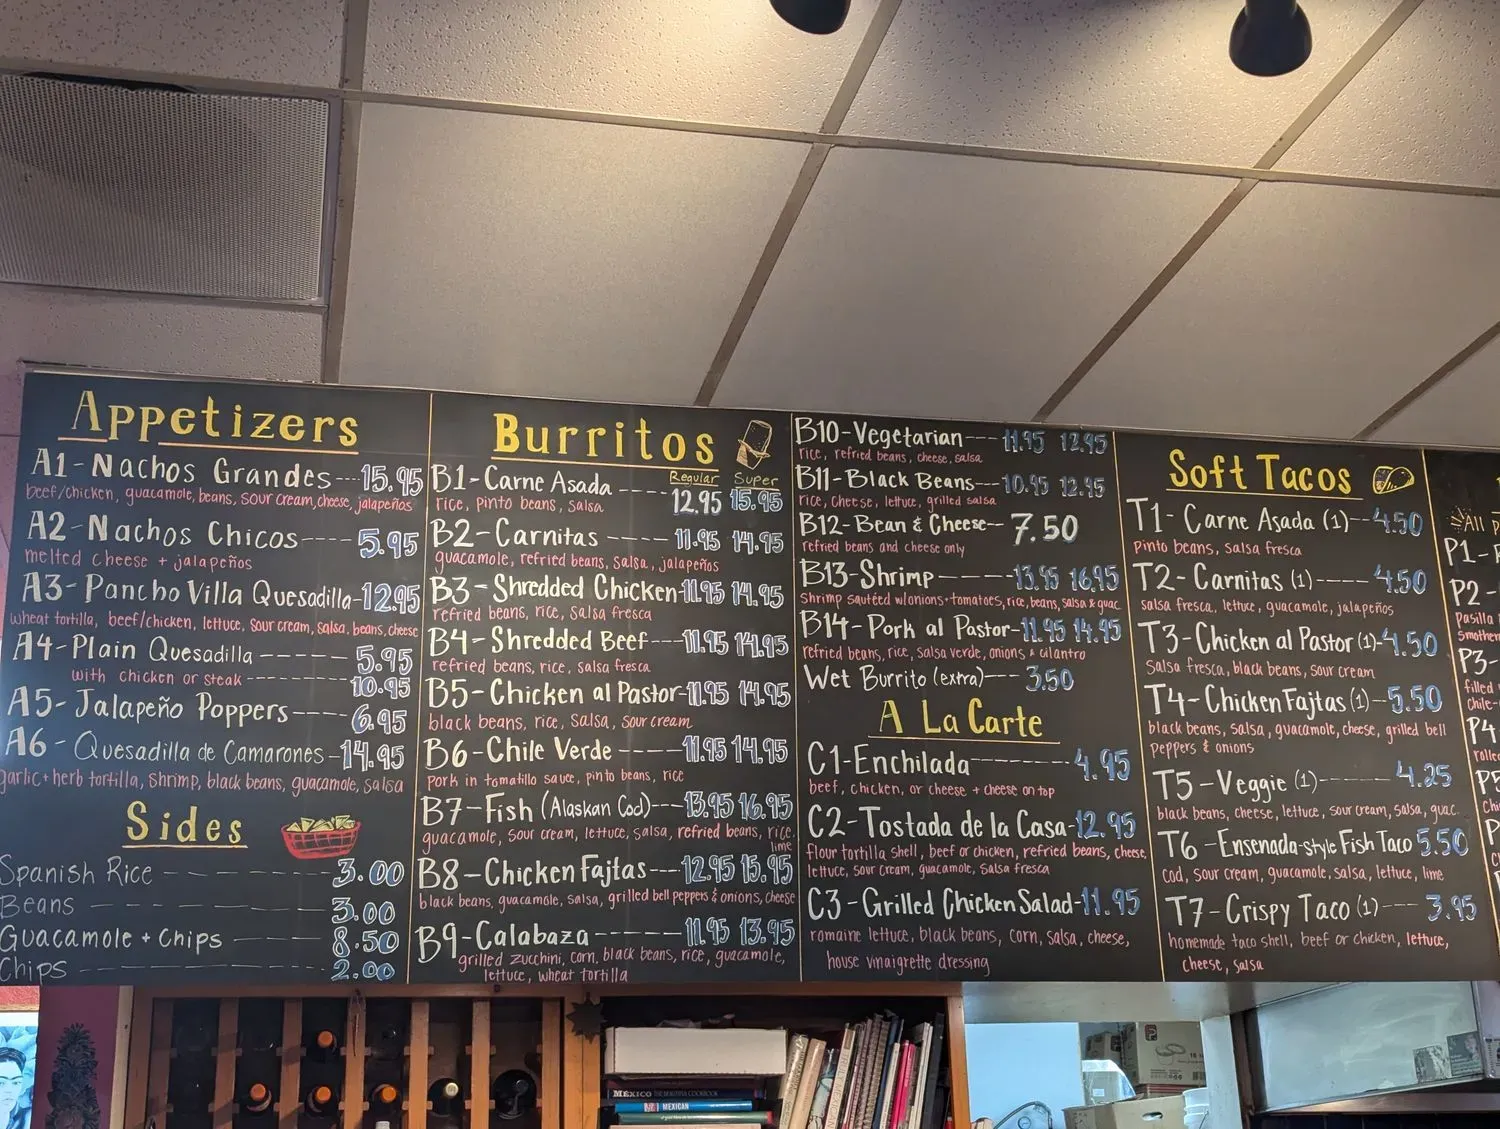 Appetizers
A1-Nachos Grandes---15.95
beef/chicken, guacamole, beans, sour cream, cheese, jalapeños
A2-Nachos Chicos----5.95
melted cheese + jalapeños
A3-Pancho Villa Quesadilla-12.95
wheat tortilla, beef/chicken, lettuce, sour cream, salsa, beans, cheese
A4-Plain Quesadilla------5.95
with chicken or steak---------10.95
A5-Jalapeño Poppers----6.95
A6-Quesadilla de Camarones-14.95
garlic+herb tortilla, shrimp, black beans, guacamole, salsa
Sides
Spanish Rice --------3.00
Beans ------------3.00
Guacamole + Chips ------8.50
Chips ------------2.00
Burritos
Regular Super
B1-Carne Asada ---- 12.95 15.95
rice, pinto beans, salsa
B2-Carnitas ----- 11.95 14.95
guacamole, refried beans, salsa, jalapeños
B3-Shredded Chicken-11.95 14.95
refried beans, rice, salsa fresca
B4-Shredded Beef---11.95 14.95
refried beans, rice, salsa fresca
B5-Chicken al Pastor-11.95 14.95
black beans, rice, salsa, sour cream
B6-Chile Verde -----11.95 14.95
pork in tomatillo sauce, pinto beans, rice
B7-Fish (Alaskan Cod)---13.95 16.95
guacamole, sour cream, lettuce, salsa, refried beans, rice,
lime
B8-Chicken Fajitas---12.95 15.95
black beans, guacamole, salsa, grilled bell peppers & onions, cheese
B9-Calabaza------11.95 13.95
grilled zucchini, corn, black beans, rice, guacamole,
lettuce, wheat tortilla
B10-Vegetarian--- 11.95 12.95
rice, refried beans, cheese, salsa
B11-Black Beans---10.95 12.95
rice, cheese, lettuce, grilled salsa
B12-Bean & Cheese-- 7.50
refried beans and cheese only
B13-Shrimp------13.95 16.95
shrimp sautéed w/onions+tomatoes, rice, beans, salsa & guac
B14-Pork al Pastor-11.95 14.95
refried beans, rice, salsa verde, onions & cilantro
Wet Burrito (extra)--- 3.50
A La Carte
C1-Enchilada---------4.95
beef, chicken, or cheese + cheese on top
C2-Tostada de la Casa-12.95
flour tortilla shell, beef or chicken, refried beans, cheese,
lettuce, sour cream, guacamole, salsa fresca
C3-Grilled Chicken Salad-11.95
romaine lettuce, black beans, corn, salsa, cheese,
house vinaigrette dressing
Soft Tacos
T1-Carne Asada (1)--4.50
pinto beans, salsa fresca
T2-Carnitas (1)-----4.50
salsa fresca, lettuce, guacamole, jalapeños
T3-Chicken al Pastor (1)-4.50
salsa fresca, black beans, sour cream
T4-Chicken Fajitas (1)-5.50
black beans, salsa, guacamole, cheese, grilled bell
peppers & onions
T5-Veggie (1)-------4.25
black beans, cheese, lettuce, sour cream, salsa, guac.
T6-Ensenada-style Fish Taco 5.50
cod, sour cream, guacamole, salsa, lettuce, lime
T7-Crispy Taco (1)--- 3.95
homemade taco shell, beef or chicken, lettuce,
cheese, salsa
All
P1-
P2-
Pasilla
Smother
P3-
filled
Chile-
P4
rolle
P5
MÉXICO THE BEAUTIFUL COOKBOOK
MEXICAN